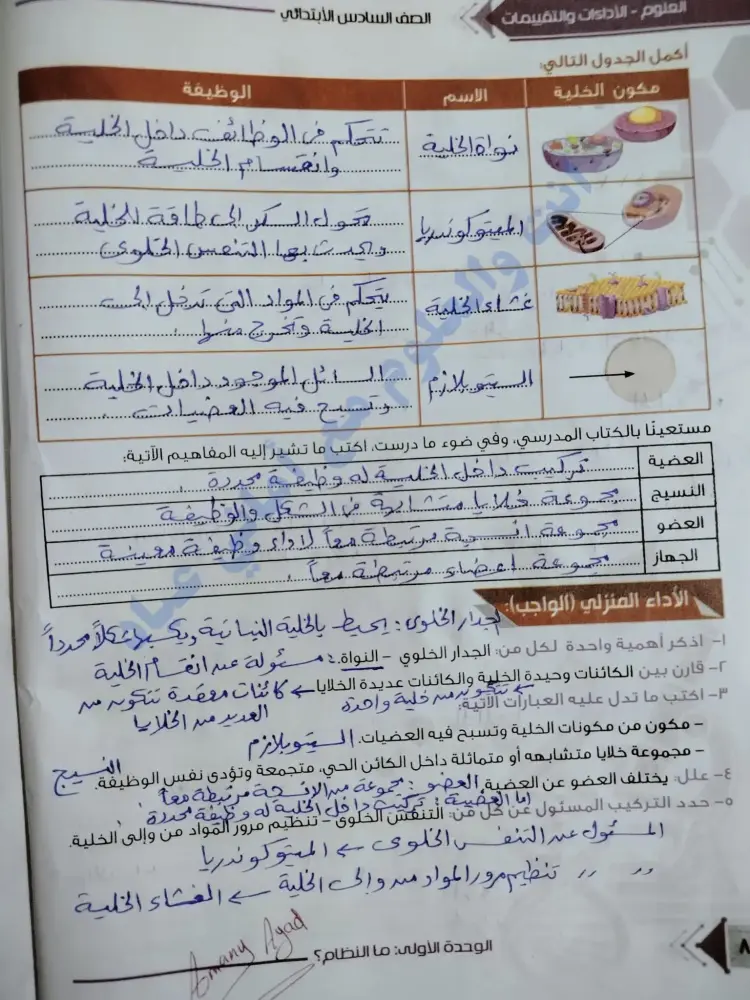 العلوم - الأداءات والتقييمات
الصف السادس الابتدائي
أكمل الجدول التالي:
مكون الخلية الاسم الوظيفة
نواة الخلية تتحكم فى الوظائف داخل الخلية
وانقسام الخلية
الميتوكوندريا تحول السكر الى طاقة الخلية
ويحدث بها التنفس الخلوى
غشاء الخلية يتحكم فى المواد التى تدخل الى
الخلية وتخرج منها
السيتوبلازم السائل الموجود داخل الخلية
وتسبح فيه العضيات
مستعينًا بالكتاب المدرسي، وفي ضوء ما درست، اكتب ما تشير إليه المفاهيم الآتية:
العضية تركيب داخل الخلية له وظيفة محددة
النسيج مجموعة خلايا متشابهة فى الشكل والوظيفة
العضو مجموعة انسجة مرتبطة معاً لاداء وظيفة معينة
الجهاز مجموعة اعضاء مرتبطة معاً
الأداء المنزلي (الواجب):
الجدار الخلوى: يحيط بالخلية النباتية ويكسبها شكلاً محدداً
١- اذكر أهمية واحدة لكل من: الجدار الخلوي - النواة.
مسئولة عن انقسام الخلية
٢- قارن بين الكائنات وحيدة الخلية والكائنات عديدة الخلايا
كائنات معقدة تتكون من
تتكون من خلية واحدة
العديد من الخلايا
٣- اكتب ما تدل عليه العبارات الآتية:
- مكون من مكونات الخلية وتسبح فيه العضيات. السيتوبلازم
- مجموعة خلايا متشابهه أو متماثلة داخل الكائن الحي، متجمعة وتؤدى نفس الوظيفة. النسيج
٤- علل: يختلف العضو عن العضية. العضو: مجموعة من الانسجة مرتبطة معاً
اما العضية: تركيب داخل الخلية له وظيفة محددة
٥- حدد التركيب المسئول عن كل من: التنفس الخلوى - تنظيم مرور المواد من وإلى الخلية.
المسئول عن التنفس الخلوى ← الميتوكوندريا
〃 〃 تنظيم مرور المواد من والى الخلية ← الغشاء الخلية
Amany Ayad
الوحدة الأولى: ما النظام؟
٨